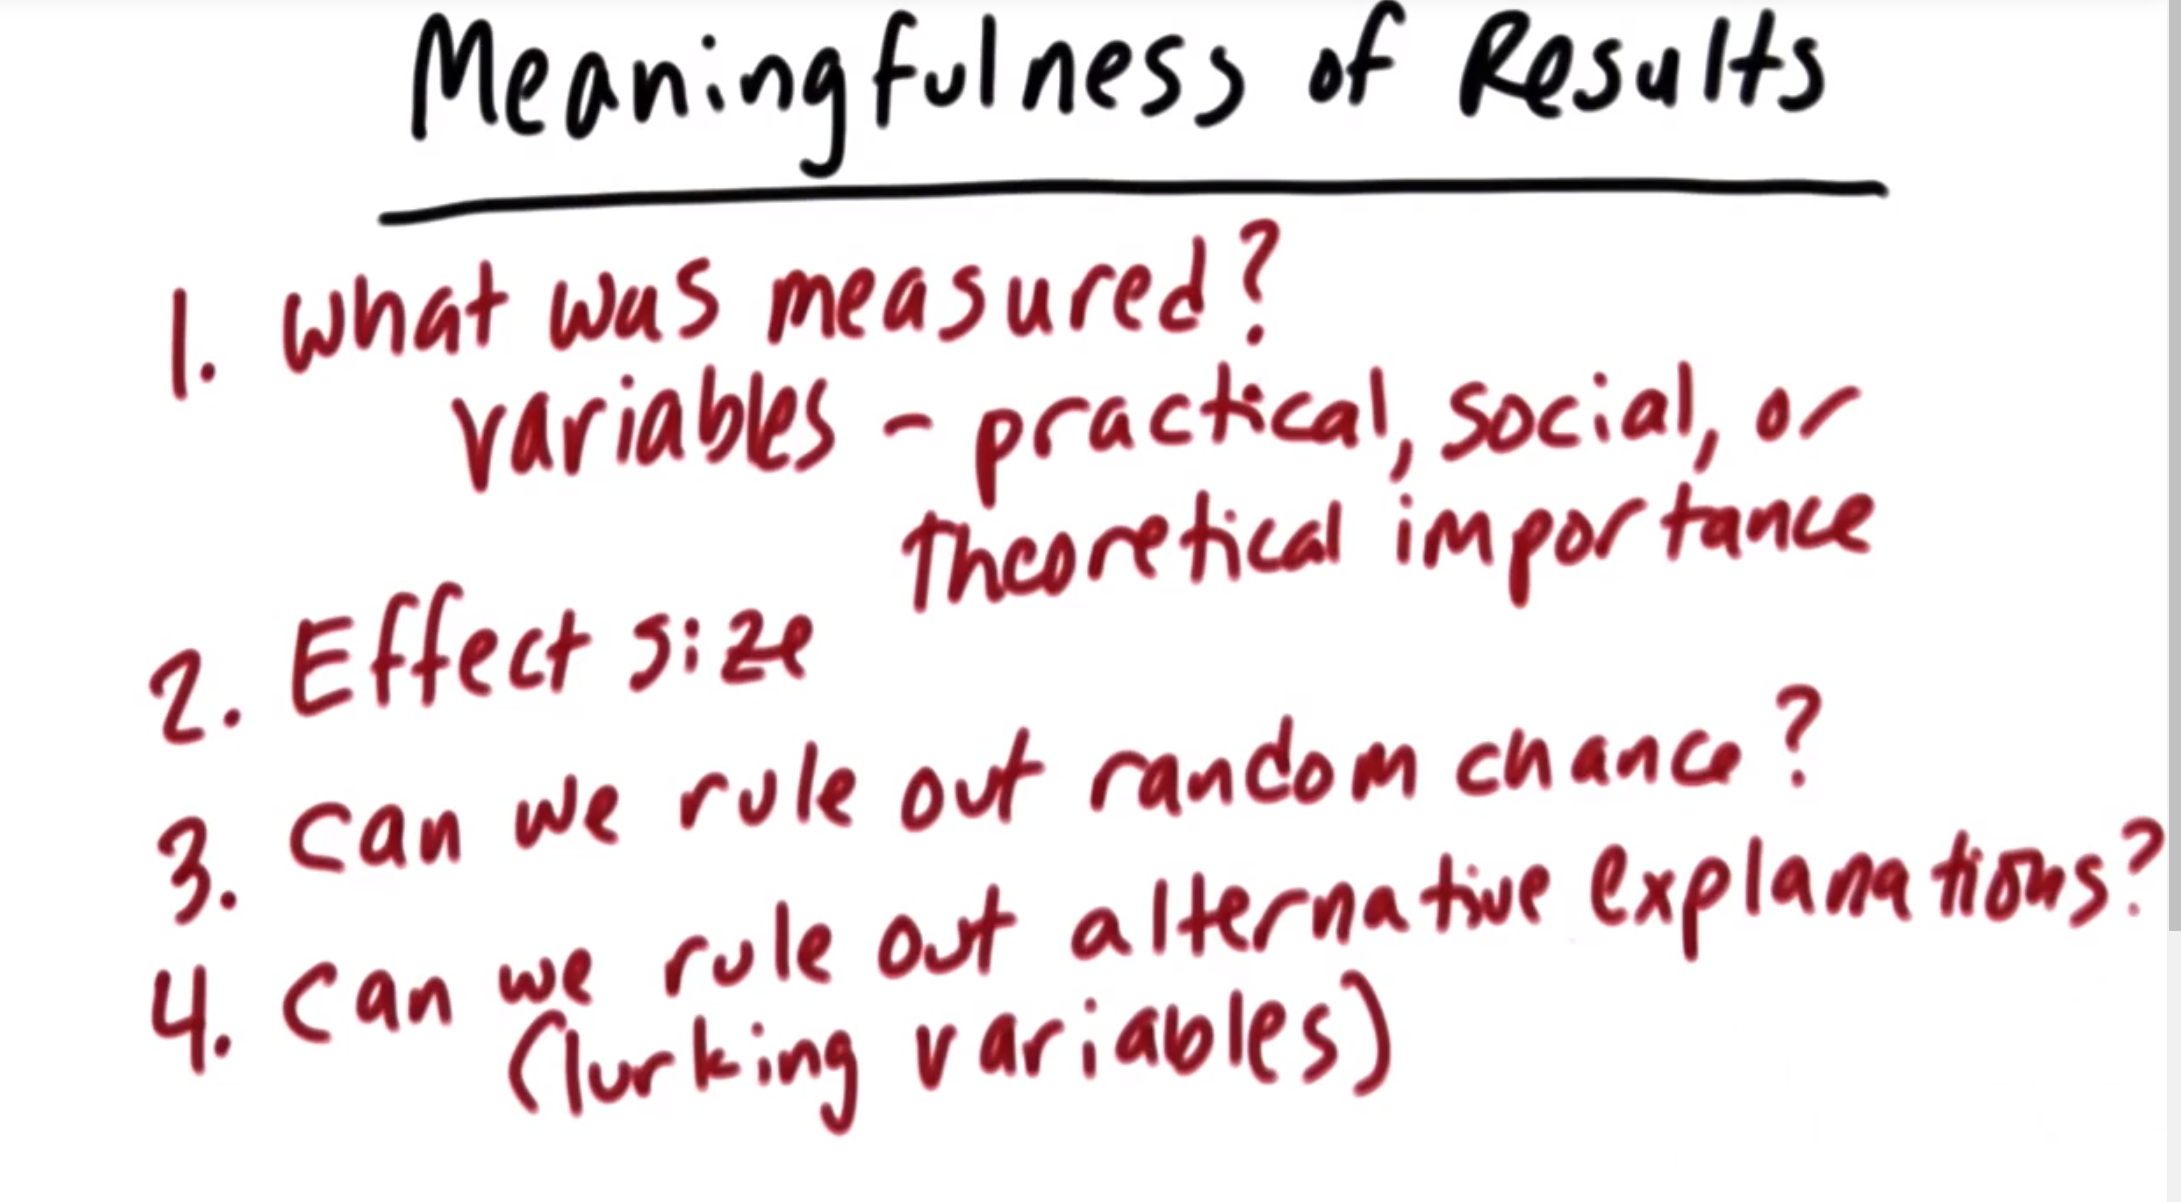 Meaningfulness of Results
1. what was measured?
variables - practical, social, or
theoretical importance
2. Effect size
3. can we rule out random chance?
4. can we rule out alternative explanations?
(lurking variables)